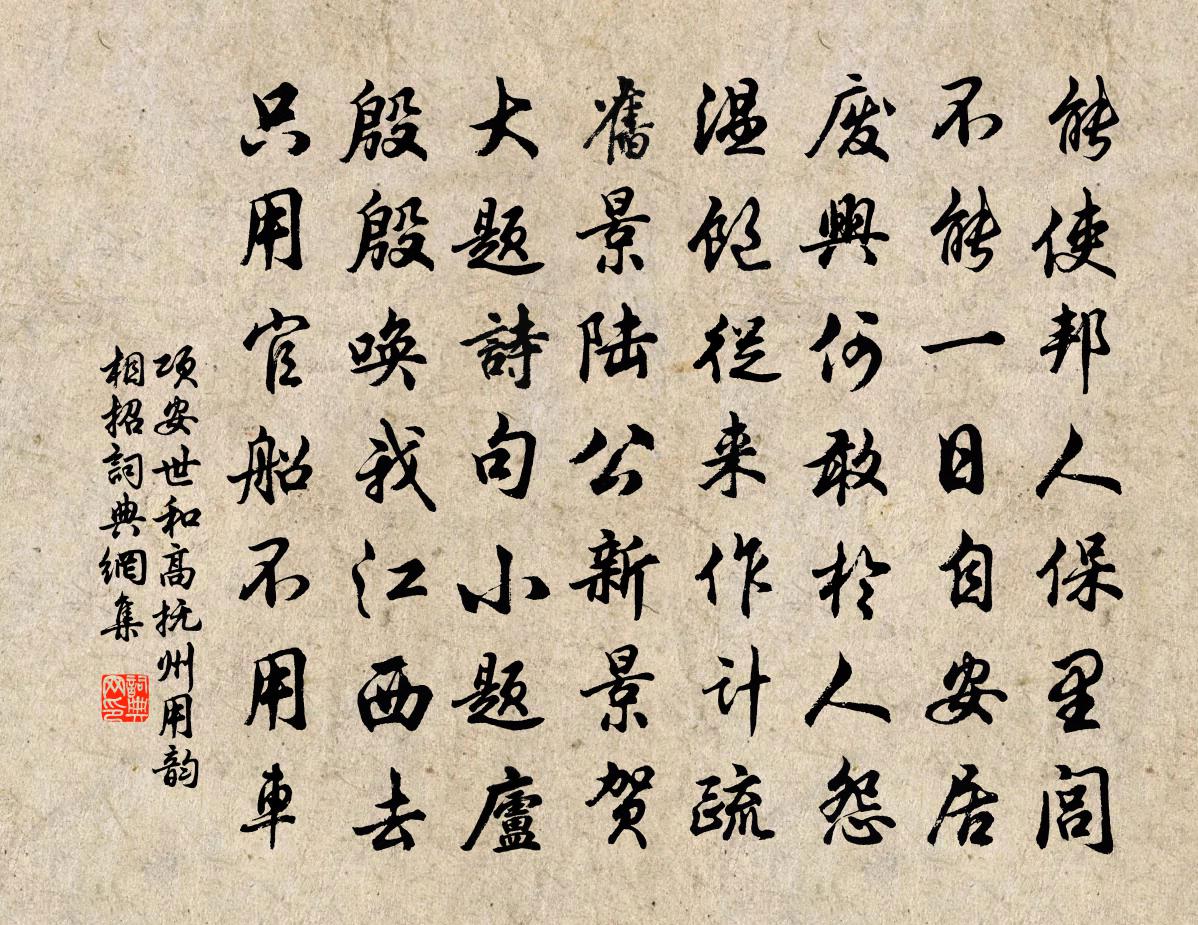 能使邦人保里閭
不能一日自安居
廢興何敢於人怨
溫飽從来作計疏
舊景陆公新景贺
大题詩句小题廬
殷殷唤我江西去
只用官船不用車
项安世和高抚州用韵
相招詞典網集
詞典
网印